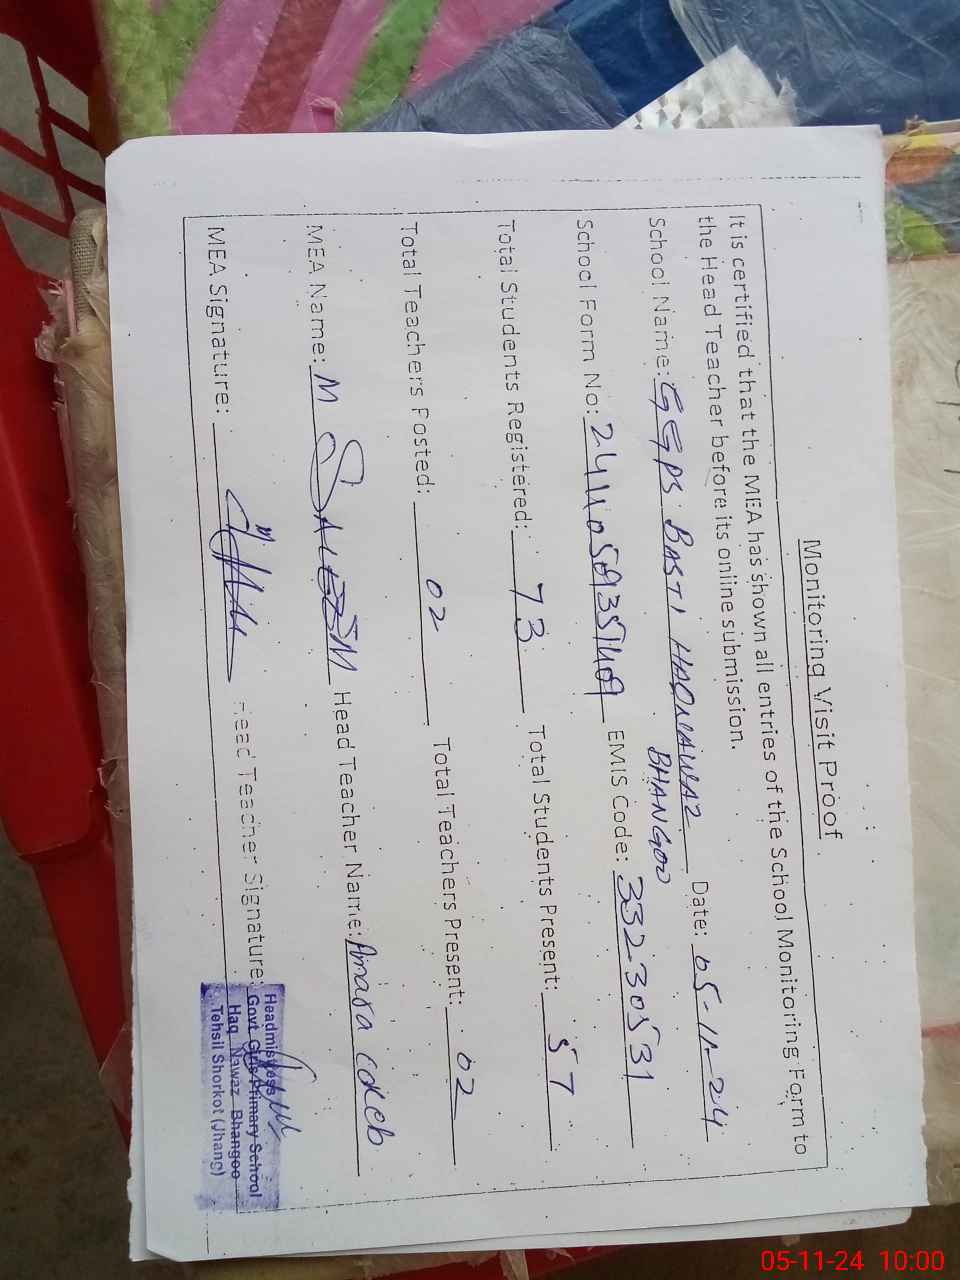 Monitoring Visit Proof
It is certified that the MEA has shown all entries of the School Monitoring Form to
the Head Teacher before its online submission.
School Name: GGPS BASTI HAQNAWAZ BHANGOO Date: 05-11-24
School Form No: EMIS Code: 33230531
Total Students Registered: 73 Total Students Present: 57
Total Teachers Posted: 02 Total Teachers Present: 02
MEA Name: M SALEEM Head Teacher Name: Amara
MEA Signature: Head Teacher Signature:
Headmistress
Govt Girls Primary School
Haq Nawaz Bhangoo
Tehsil Shorkot (Jhang)
05-11-24 10:00